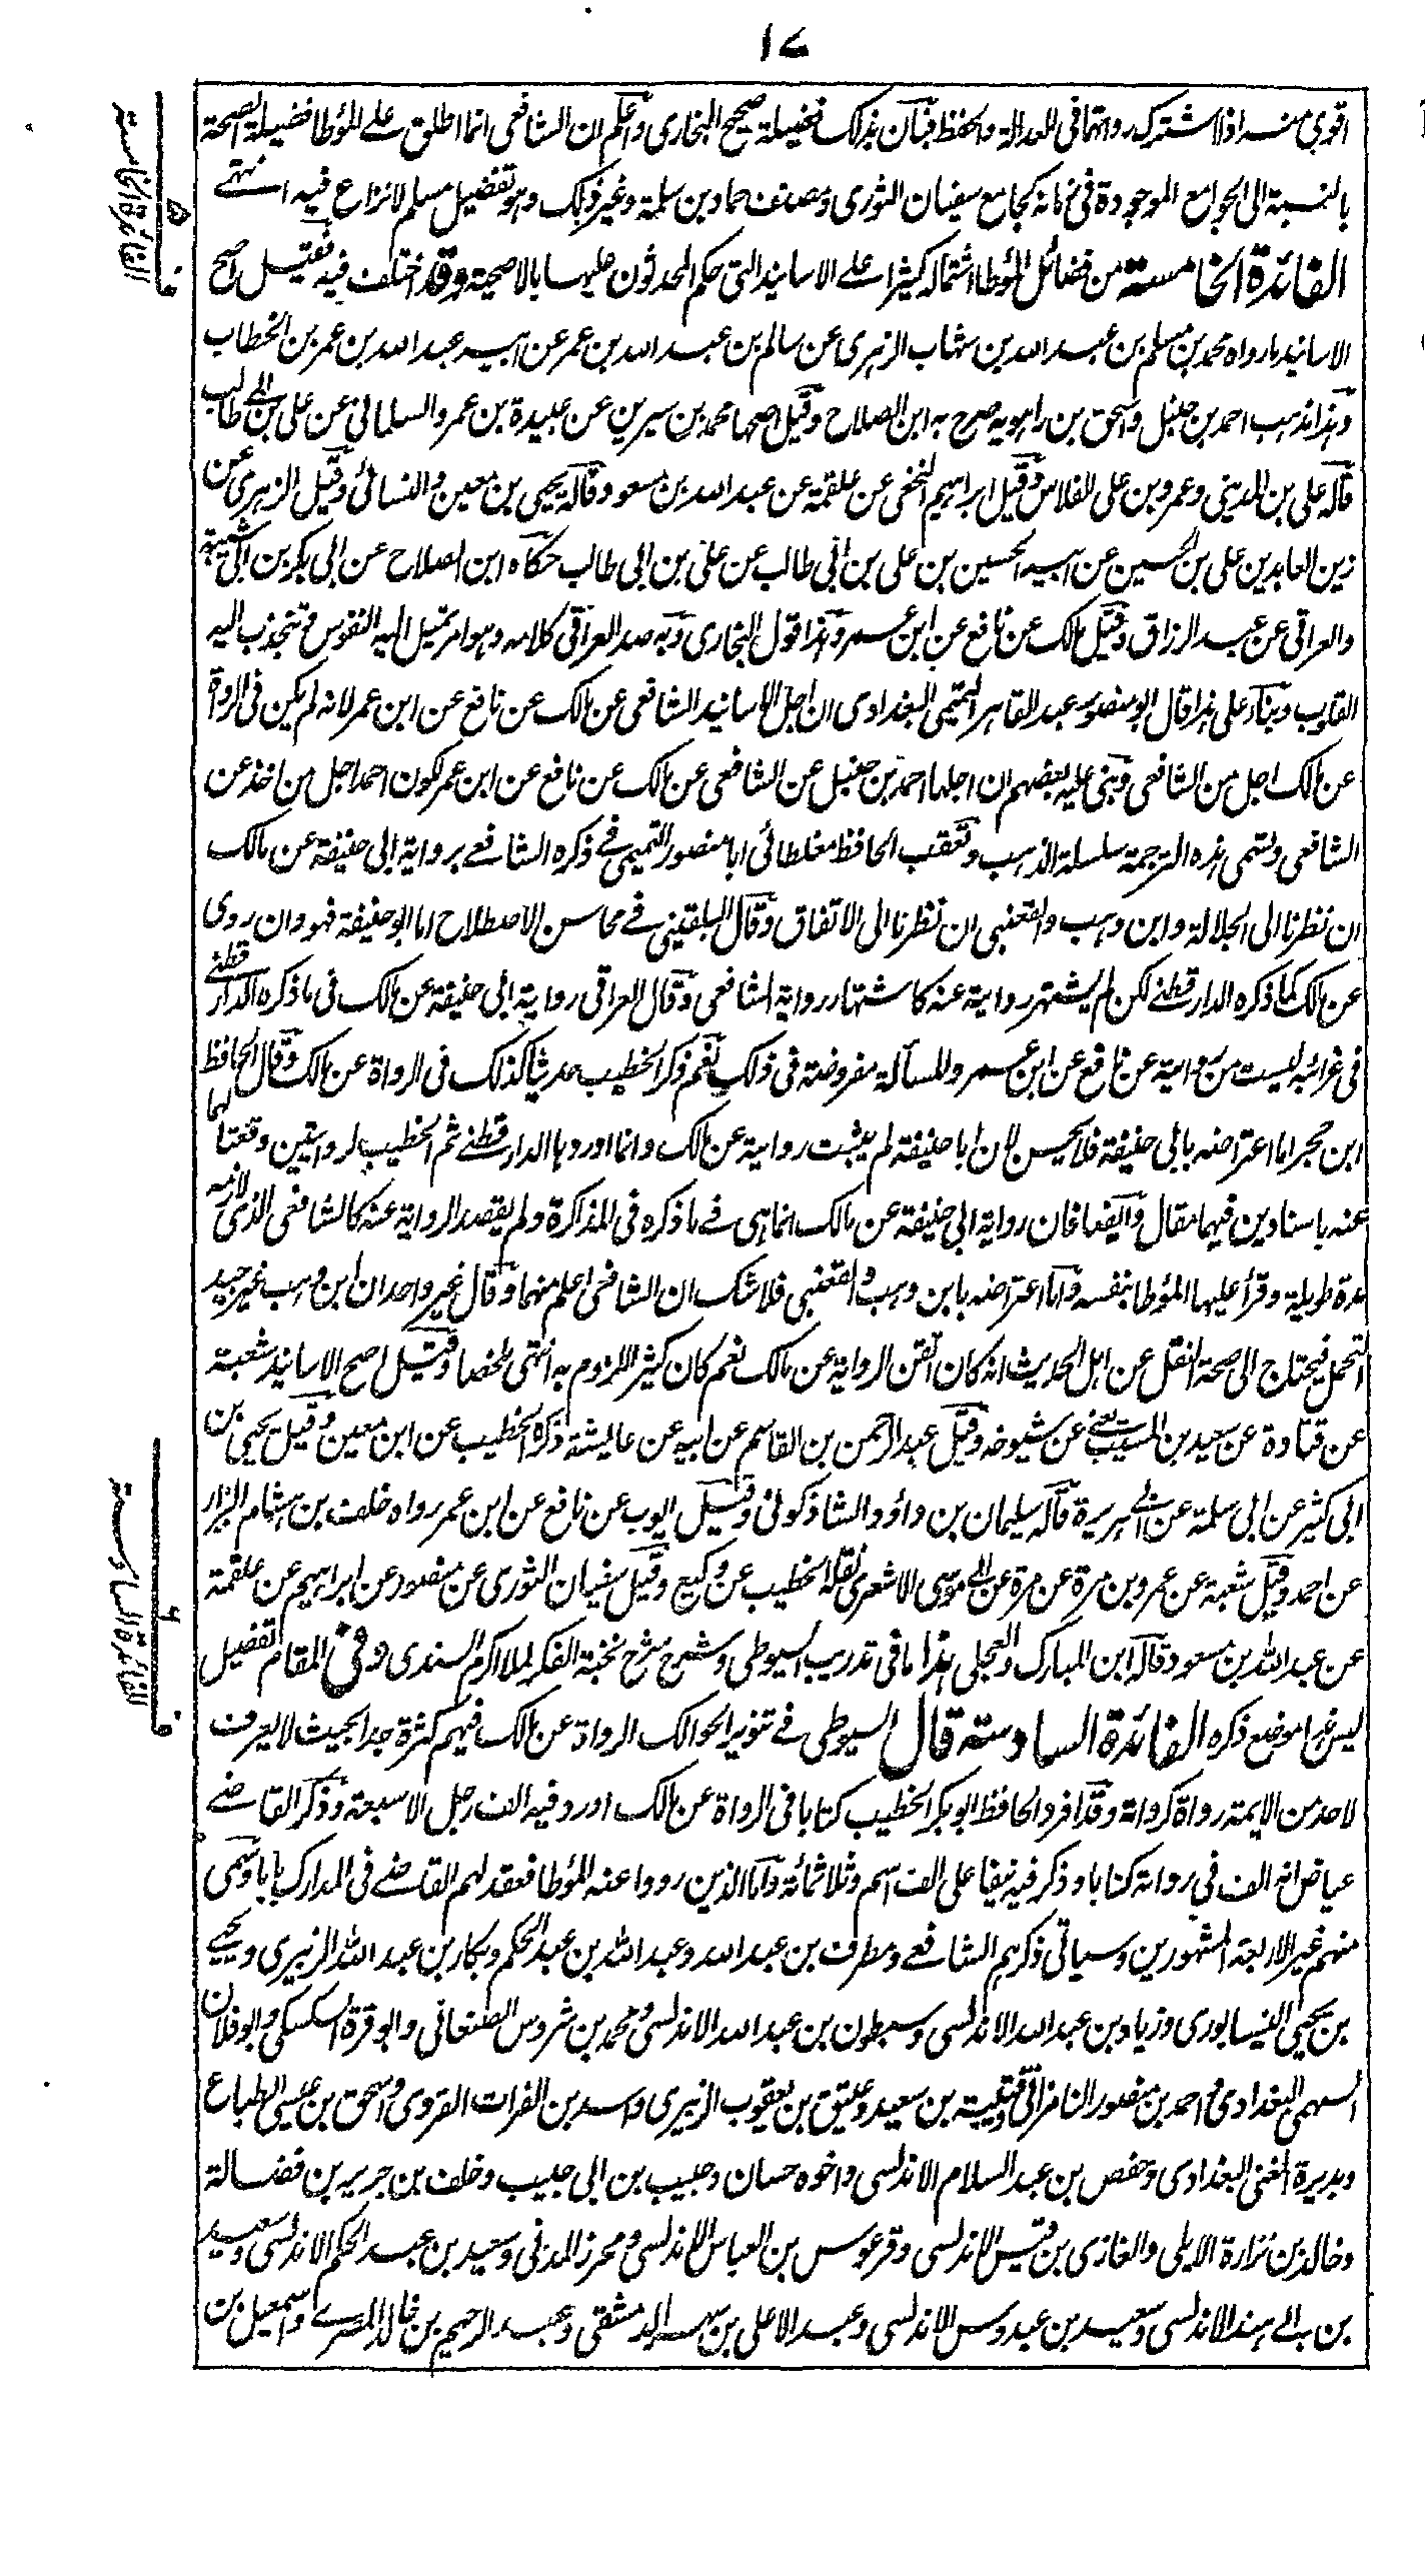 ١٧
اقوى منه اذ لاشتراك رواتهما فى العدالة والحفظ فبان بذلك فضيلة صحيح البخارى واعلم ان الشافعى انما اطلق على المؤطا فضيلة الصحة
بالنسبة الى الجوامع الموجودة فى زمانه كجامع سفيان الثورى ومصنف حماد بن سلمة وغير ذلك وهو تفضيل مسلم لا نزاع فيه انتهى
الفائدة الخامسة من فضائل المؤطا اشتماله كثيرا على الاسانيد التى حكم المحدثون عليها بالاصحية وقد اختلف فيه فقيل اصح
الاسانيد ما رواه محمد بن مسلم بن عبد الله بن شهاب الزهرى عن سالم بن عبد الله بن عمر عن ابيه عبد الله بن عمر بن الخطاب
وهذا مذهب احمد بن حنبل واسحق بن راهويه صرح به ابن الصلاح وقيل اصحها محمد بن سيرين عن عبيدة بن عمرو السلمانى عن على بن ابى طالب
قاله على بن المدينى وعمرو بن على الفلاس وقيل ابراهيم النخعى عن علقمة عن عبد الله بن مسعود وقاله يحيى بن معين والنسائى وقيل الزهرى عن
زين العابدين على بن الحسين عن ابيه الحسين بن على بن ابى طالب عن على بن ابى طالب حكاه ابن الصلاح عن ابى بكر بن ابى شيبة
والعراقى عن عبد الرزاق وقيل مالك عن نافع عن ابن عمر وهذا قول البخارى وبه صدر العراقى كلامه وهو امر تميل اليه النفوس وتنجذب اليه
القلوب وبناء على هذا قال ابو منصور عبد القاهر التميمى البغدادى ان اجل الاسانيد الشافعى عن مالك عن نافع عن ابن عمر لانه لم يكن فى الرواة
عن مالك اجل من الشافعى وبنى عليه بعضهم ان اجلها احمد بن حنبل عن الشافعى عن مالك عن نافع عن ابن عمر لكون احمد اجل من اخذ عن
الشافعى وتسمى هذه الترجمة سلسلة الذهب وتعقب الحافظ مغلطائى ابا منصور التميمى فى ذكره الشافعى برواية ابى حنيفة عن مالك
ان نظرنا الى الجلالة وابن وهب والقعنبى ان نظرنا الى الاتقان وقال البلقينى فى محاسن الاصطلاح اما ابو حنيفة فهو وان روى
عن مالك كما ذكره الدارقطنى لكن لم يشتهر روايته عنه كاشتهار رواية الشافعى وقال العراقى رواية ابى حنيفة عن مالك فى ما ذكره الدارقطنى
فى غرائبه ليست من روايته عن نافع عن ابن عمر والمسألة مفروضة فى ذلك نعم ذكر الخطيب حديثا كذلك فى الرواة عن مالك وقال الحافظ
ابن حجر اما اعتراضه بابى حنيفة فلا يحسن لان ابا حنيفة لم يثبت روايته عن مالك وانما اوردها الدارقطنى ثم الخطيب لروايتين وقعتا لهما
عنه باسنادين فيهما مقال وايضا فان رواية ابى حنيفة عن مالك انما هى فى ما ذكره فى المذاكرة ولم يقصد الرواية عنه كالشافعى الذى لازمه
مدة طويلة وقرأ عليها المؤطا بنفسه واما اعتراضه بابن وهب والقعنبى فلا شك ان الشافعى اعلم منهما وقال غير واحد ان ابن وهب غير جيد
التحمل فيحتاج الى صحة النقل عن اهل الحديث انه كان اتقن الرواية عن مالك نعم كان كثير اللزوم به انتهى ملخصا وقيل اصح الاسانيد شعبة
عن قتادة عن سعيد بن المسيب يعنى عن شيوخه وقيل عبد الرحمن بن القاسم عن ابيه عن عايشة ذكره الخطيب عن ابن معين وقيل يحيى بن
ابى كثير عن ابى سلمة عن ابى هريرة قاله سليمان بن داؤد الشاذكونى وقيل ايوب عن نافع عن ابن عمر رواه خلف بن هشام البزار
عن احمد وقيل شعبة عن عمرو بن مرة عن مرة عن ابى موسى الاشعرى نقله الخطيب عن وكيع وقيل سفيان الثورى عن منصور عن ابراهيم عن علقمة
عن عبد الله بن مسعود قاله ابن المبارك والعجلى هذا ما فى تدريب السيوطى وشرح شرح نخبة الفكر لملا اكرم السندى وفى المقام تفصيل
ليس هذا موضع ذكره الفائدة السادسة قال السيوطى فى تنوير الحوالك الرواة عن مالك فيهم كثرة جدا بحيث لا يعرف
لاحد من الايمة رواة كرواته وقد افرد الحافظ ابو بكر الخطيب كتابا فى الرواة عن مالك اورد فيه الف رجل الا سبعة وذكر القاضى
عياض انه الف فى رواته كتابا وذكر فيه نيفا على الف اسم وثلاثمائة واما الذين رووا عنه المؤطا فعقد لهم القاضى فى المدارك بابا وسمى
منهم غير الاربعة المشهورين وسياتى ذكرهم الشافعى ومطرف بن عبد الله وعبد الله بن عبد الحكم وبكار بن عبد الله الزبيرى ويحيى
بن يحيى النيسابورى وزياد بن عبد الله الاندلسى وسبطون بن عبد الله الاندلسى ومحمد بن شروس الصنعانى وابو قرة السكسكى وابو فلان
السهمى البغدادى واحمد بن منصور النامرانى وقتيبة بن سعيد وعتيق بن يعقوب الزبيرى واسد بن الفرات القروى واسحق بن عيسى الطباع
وبديرة المغنى البغدادى وحفص بن عبد السلام الاندلسى واخوه حسان وحبيب بن ابى حبيب وخلف بن جرير بن فضالة
وخالد بن نزارة الايلى والغازى بن قيس الاندلسى وقرعوس بن العباس الاندلسى ومحرز المدنى وسعيد بن عبد الحكم الاندلسى وسعيد
بن ابى هند الاندلسى وسعيد بن عبدوس الاندلسى وعبد الاعلى بن مسهر الدمشقى وعبد الرحيم بن خالد المصرى واسمعيل بن
ف ٥ الفائدة الخامسة
ف ٦ الفائدة السادسة